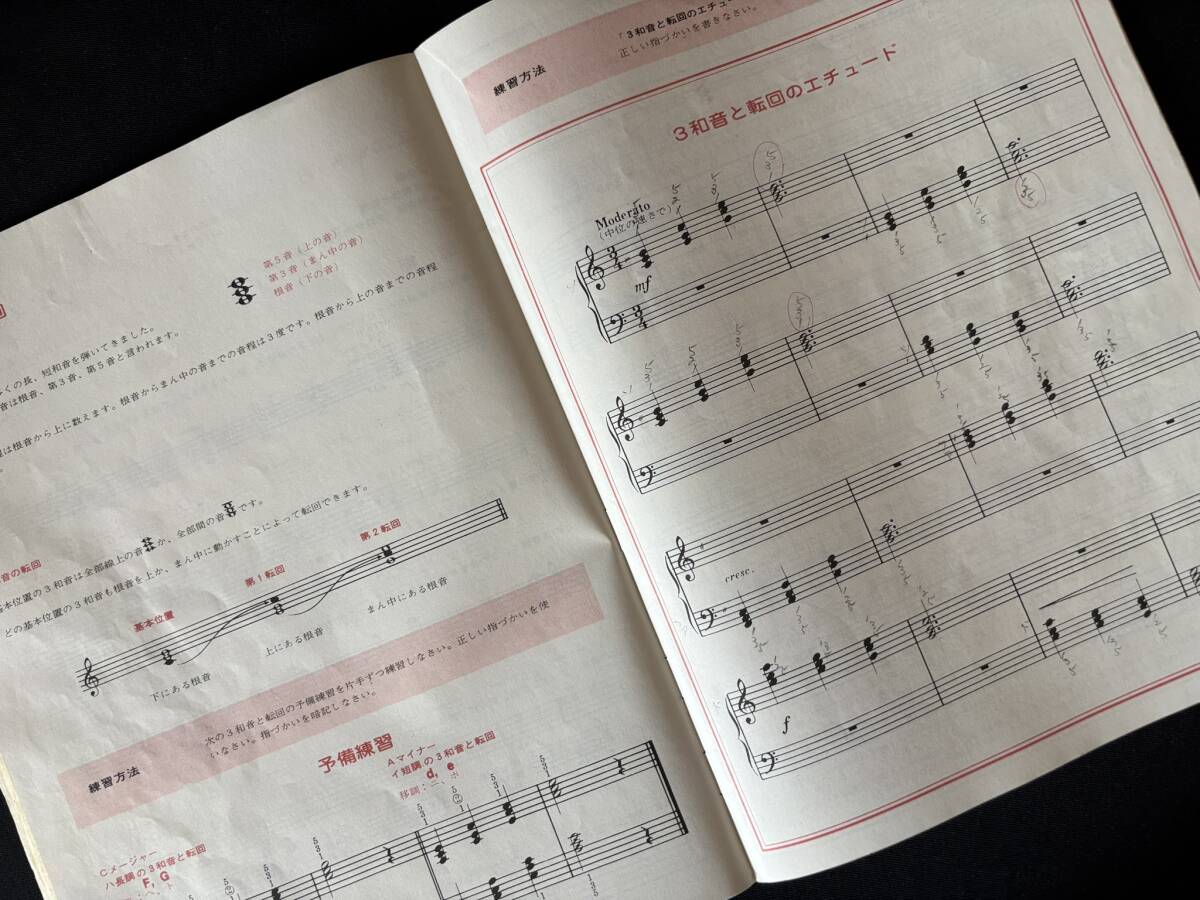 第5音（上の音）
第3音（まん中の音）
根音（下の音）
くの長、短和音を弾いてきました。
音は根音、第3音、第5音と言われます。
程は根音から上に数えます。根音からまん中の音までの音程は3度です。根音から上の音までの音程
音の転回
基本位置の3和音は全部線上の音か、全部間の音です。
どの基本位置の3和音も根音を上か、まん中に動かすことによって転回できます。
基本位置
第1転回
第2転回
下にある根音
上にある根音
まん中にある根音
練習方法
次の3和音と転回の予備練習を片手ずつ練習しなさい。正しい指づかいを使
いなさい。指づかいを暗記しなさい。
予備練習
Cメージャー
ハ長調の3和音と転回
F, G
Aマイナー
イ短調の3和音と転回
d, e
移調：ニ、ホ
練習方法
「3和音と転回のエチュー
正しい指づかいを書きなさい。
3和音と転回のエチュード
Moderato
（中位の速さで）
mf
cresc.
f